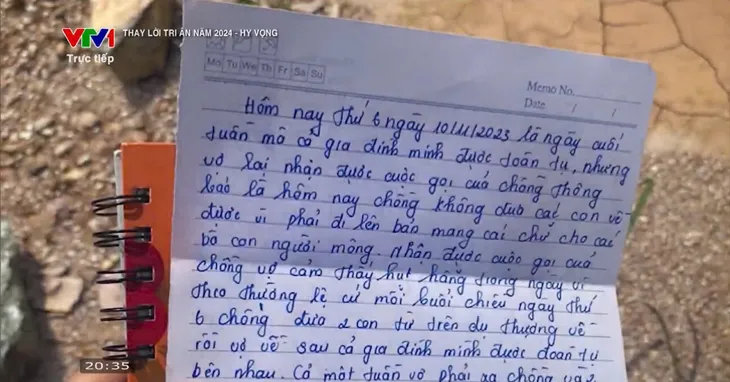 VTV1 THAY LỜI TRI ÂN NĂM 2024 - HY VỌNG
Trực tiếp
Mo Tu We Th Fr Sa Su
Memo No.
Date / /
Hôm nay thứ 6 ngày 10/11/2023 là ngày cuối
tuần mà cả gia đình mình được đoàn tụ, nhưng
vợ lại nhận được cuộc gọi của chồng thông
báo là hôm nay chồng không đưa các con về
được vì phải đi lên bản mang cái chữ cho các
bà con người mông. Nhận được cuộc gọi của
chồng vợ cảm thấy hụt hẫng trong ngày vì
theo thường lệ cứ mỗi buổi chiều ngày thứ
6 chồng đưa 2 con từ trên dụ thượng về
rồi vợ về sau cả gia đình mình được đoàn tụ
bên nhau. Cả một tuần vợ phải xa chồng và 2
20:35